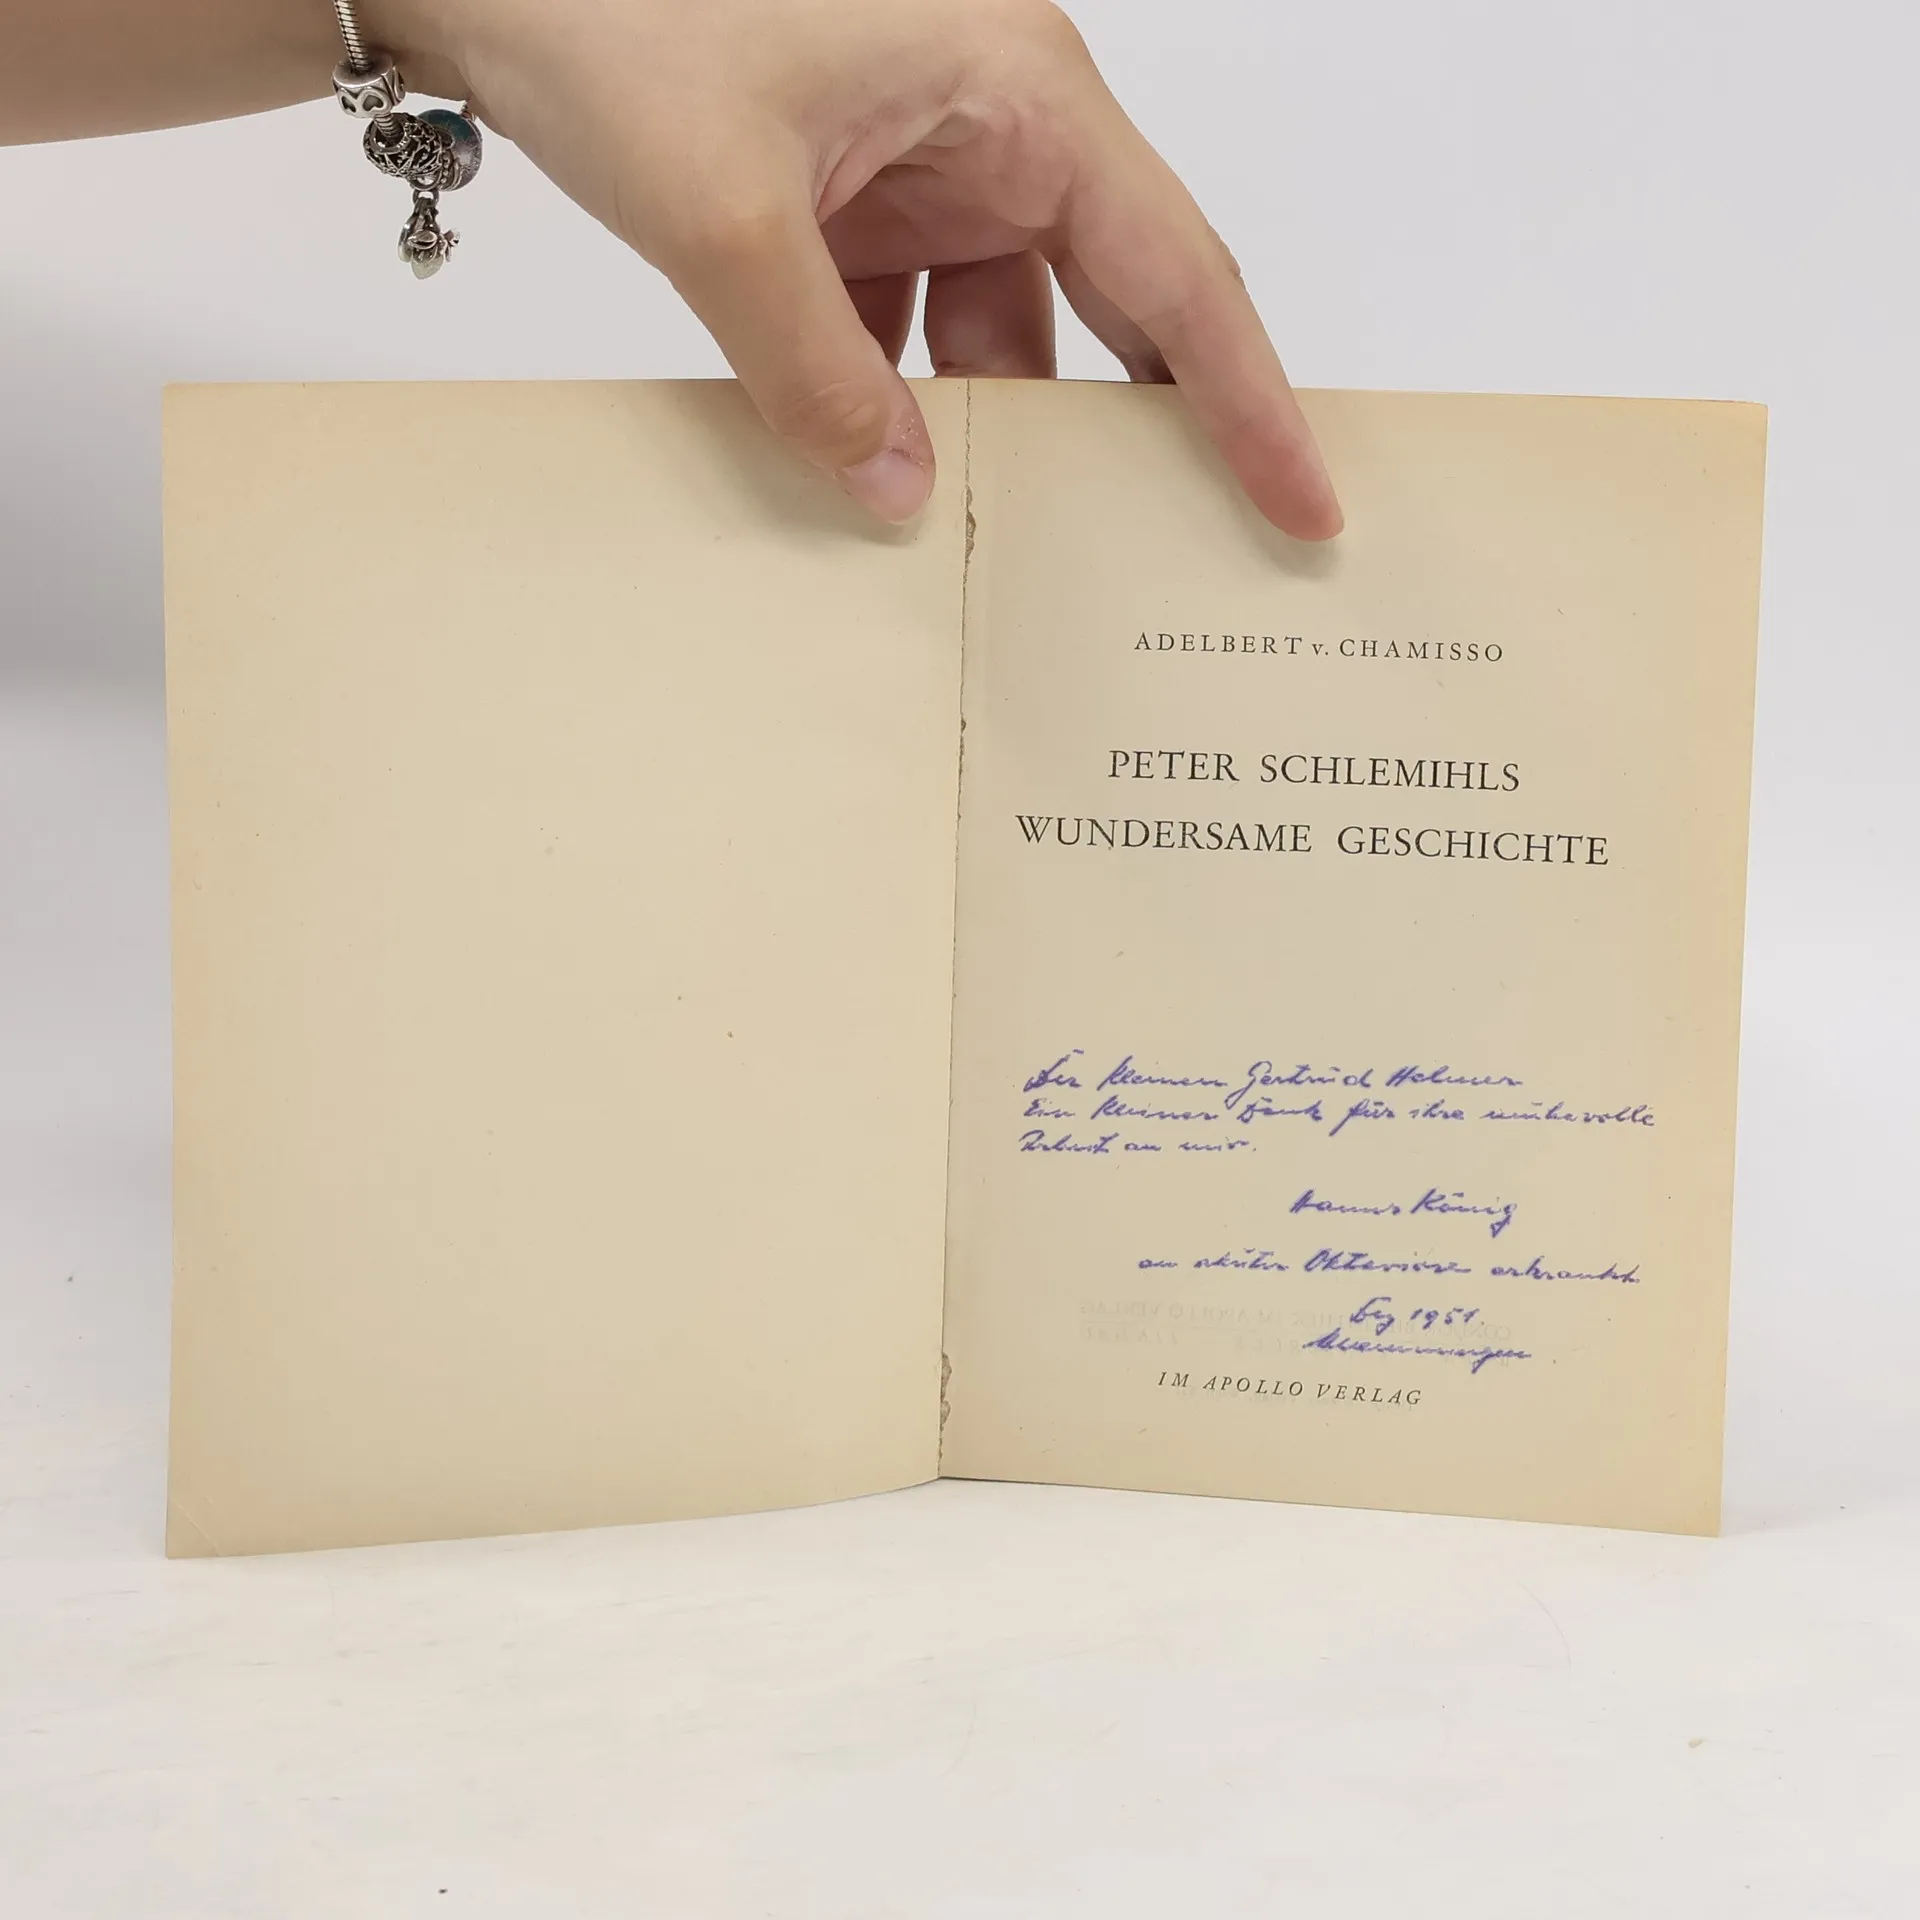 ADELBERT v. CHAMISSO
PETER SCHLEMIHLS
WUNDERSAME GESCHICHTE
Der kleinen Gertrud Helmer
Ein kleiner Dank für ihre mühevolle
Arbeit an mir.
Hanns König
an akuter erkrankt.
Dez 1951.
IM APOLLO VERLAG